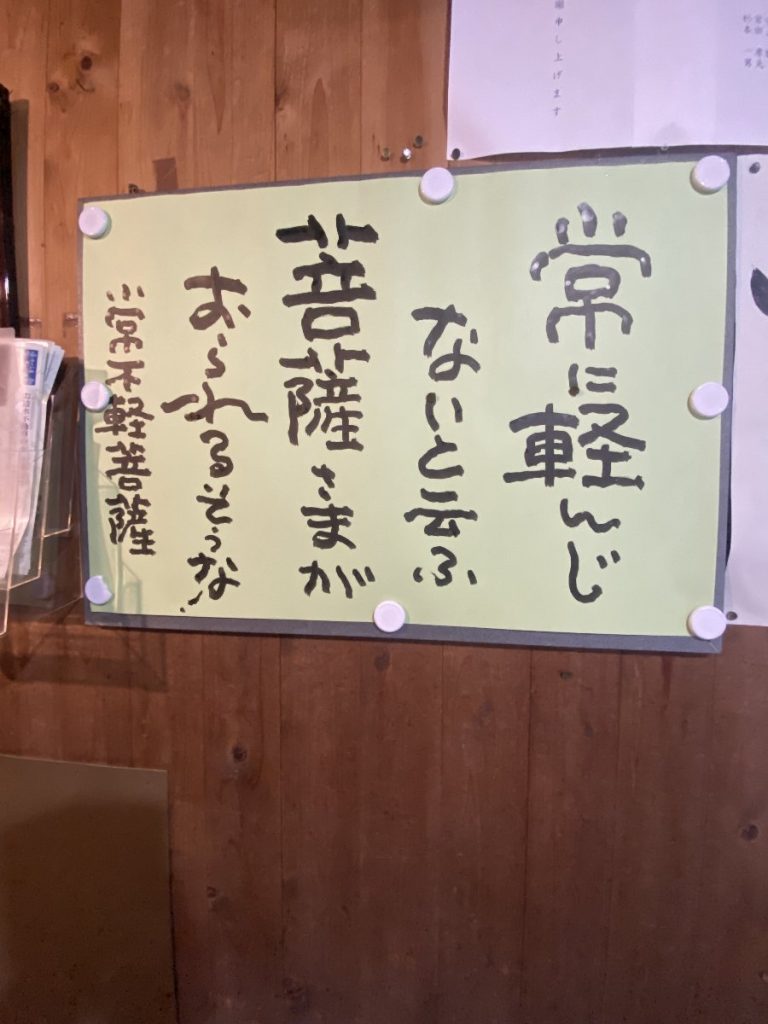 常に軽んじ
ないと云ふ
菩薩さまが
おられるそうな!
常不軽菩薩
願申し上げます